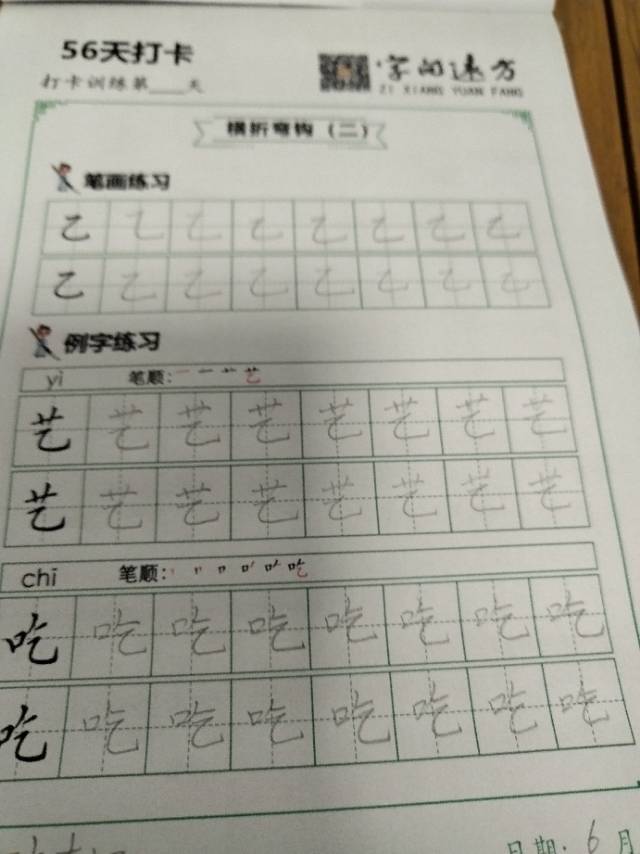 56天打卡
打卡训练第___天
字向远方
ZI XIANG YUAN FANG
横折弯钩（二）
笔画练习
乙 乙 乙 乙 乙 乙 乙 乙
乙 乙 乙 乙 乙 乙 乙 乙
例字练习
yì 笔顺: 一 艹 艺
艺 艺 艺 艺 艺 艺 艺 艺
艺 艺 艺 艺 艺 艺 艺 艺
chī 笔顺: 吃
吃 吃 吃 吃 吃 吃 吃 吃
吃 吃 吃 吃 吃 吃 吃 吃
日期: 6 月